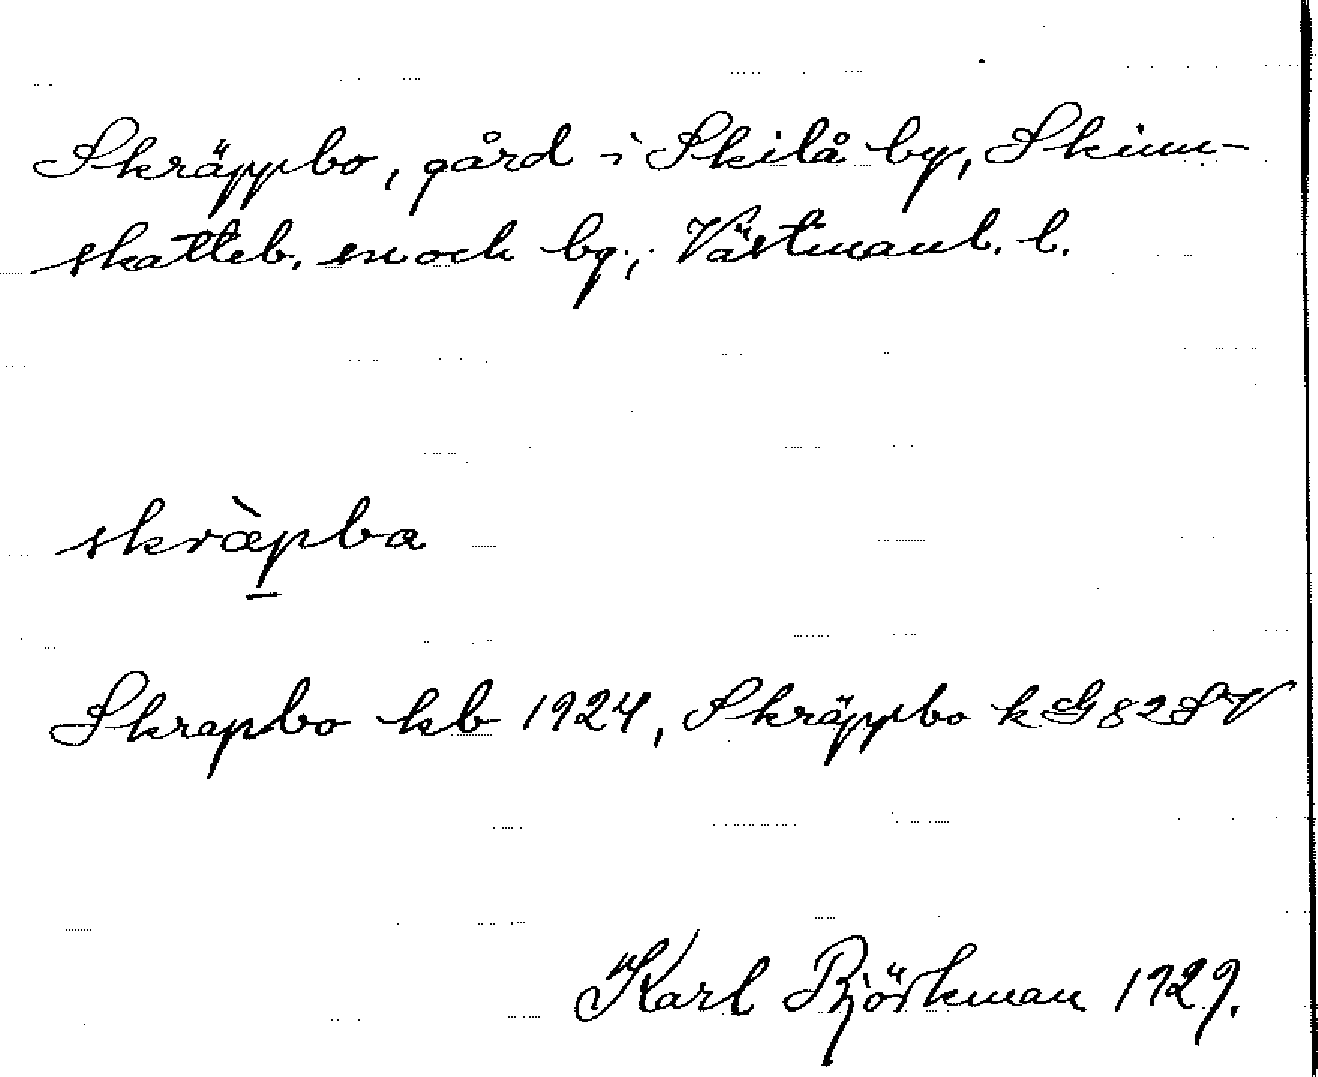 Skräppbo, gård i Skilå by, Skinn-
skatteb. sn och bg., Västmanl. l.
skràpba
Skrapbo kb 1924, Skräppbo k G 82 SV
Karl Björkman 1929.